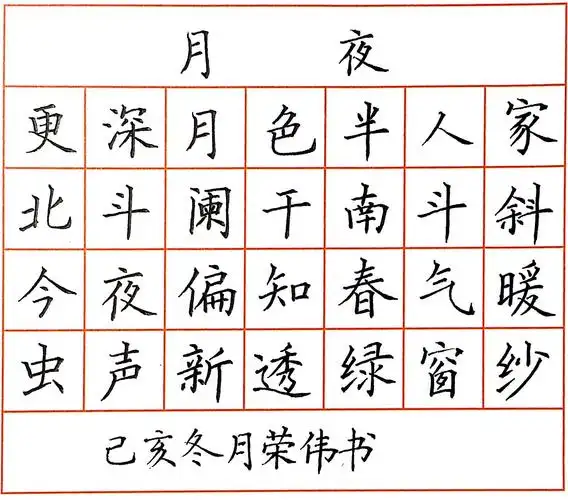 月夜
更深月色半人家
北斗阑干南斗斜
今夜偏知春气暖
虫声新透绿窗纱
己亥冬月荣伟书